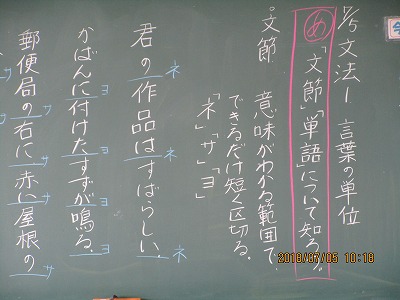 7/5 文法1 言葉の単位
め 「文節」「単語」について知ろう。
。文節 意味がわかる範囲で、
できるだけ短く区切る。
「ネ」「サ」「ヨ」
君の作品はすばらしい。
ネ ネ ネ
かばんに付けたすずが鳴る。
ヨ ヨ ヨ ヨ
郵便局の右に赤い屋根の
サ サ サ サ
2018/07/05 10:19